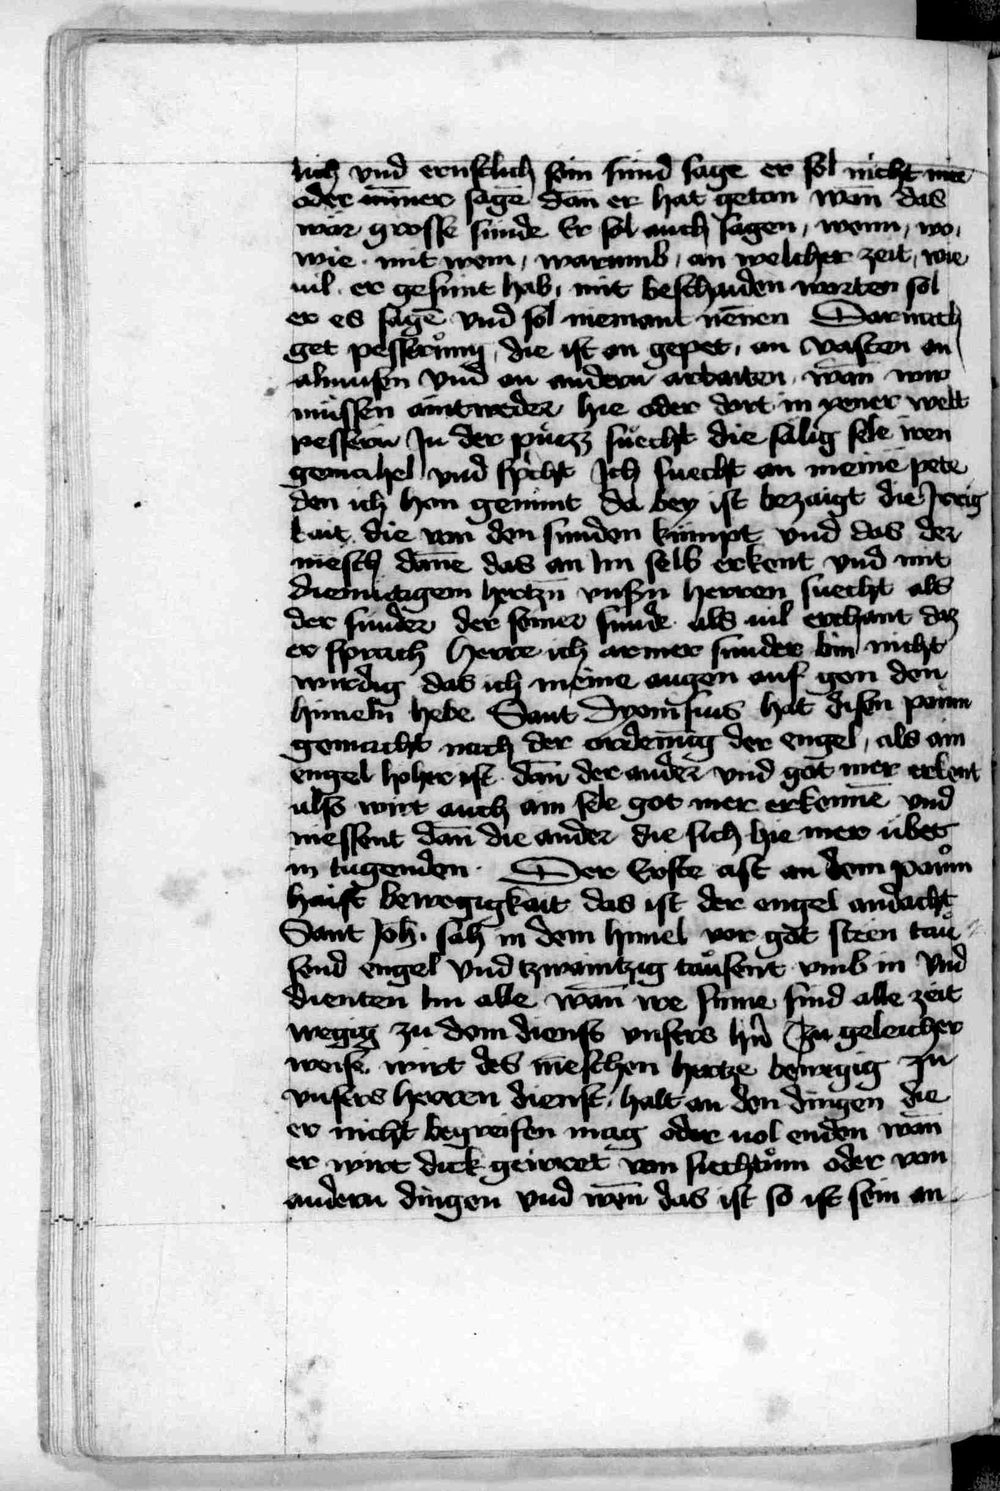 lich vnd ernstlich sein sünd sage er sol nicht mee
oder mīner sagē dañ er hat getan wañ das
wär grosse sünde Er sol auch sagen, wenn, wo,
wie. mit wem, warumb, an welcher zeit, wie
uil. er gesünt hab, mit beschaiden worten sol
er es sagē vnd sol niemant nēnen Darnach
get pesserůnng, die ist an gepet, an vasten an
almusen vnd an andern arbaiten, wañ wir
müssen äintweder hie oder dort in yener welt
pessern Jn der půzz sůecht die sälig sele iren
gemahel vnd spͥcht Jch suecht an meinē pete
den ich han geminnt da bey ist bezaigt die Jrrig
kait die von den sunden kümpt vnd das der
mēsch dañe das an im selb erkent vnd mit
diemütigem hertzn̄ vnsn̄ herren suecht als
der sunder der seiner sunde als uil erchant daz
er sprach herre ich armer sunder bin nicht
wirdig das ich meine augen auf gen den
himeln hebe Sant Dyonisius hat disen paum
gemacht nach der ordenūg der engel, als ain
engel hoher ist dañ der ander vnd got mer erkent
alss wirt auch ain sele got mer erkennē vnd
niessent dañ die ander die sich hie mer übet
in tugenden. Der Erste ast an dem paům
haist bewegigkait das ist der engel andacht
Sant Joh. sah in dem himel vor got steen tau
send engel vnd tzwaintzig taůsent vmb in vnd
dienten im alle wañ we sinne sind alle zeit
wegig zu dem dienst vnsers hrn̄ Zu geleicher
weise wirt des mēschen hertze bewegig zu
vnsers herren dienst, halt an den dingen die
er nicht begreifen mag oder uol enden wan̄
er wirt dick geirret von siechtům oder von
andern dingen vnd wen̄ das ist so ist sein an